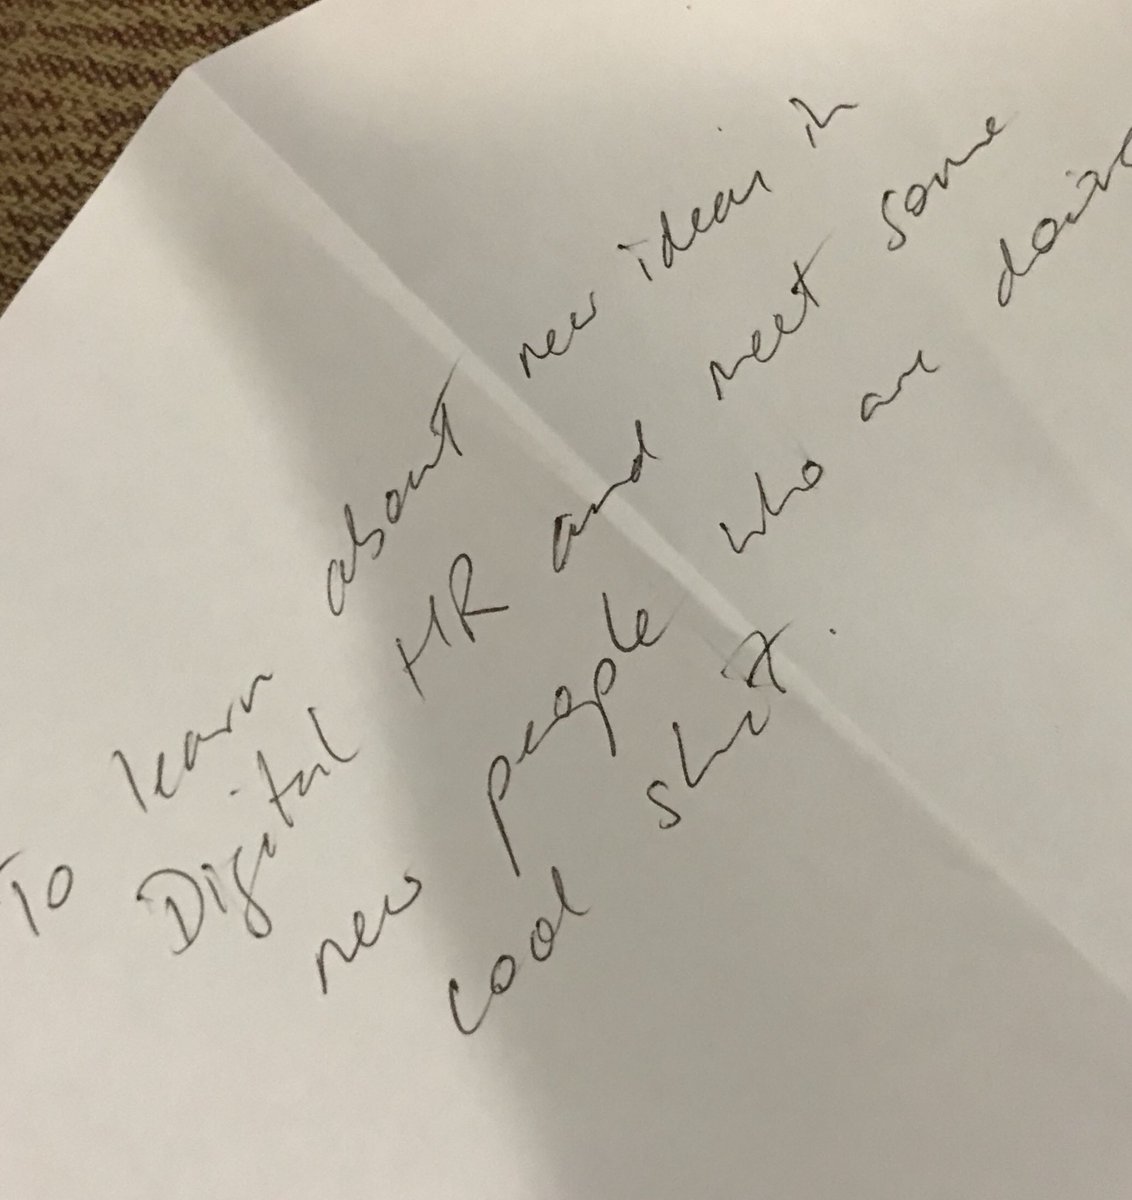 To learn about new ideas in
Digital HR and meet some
new people who are doing
cool shit.